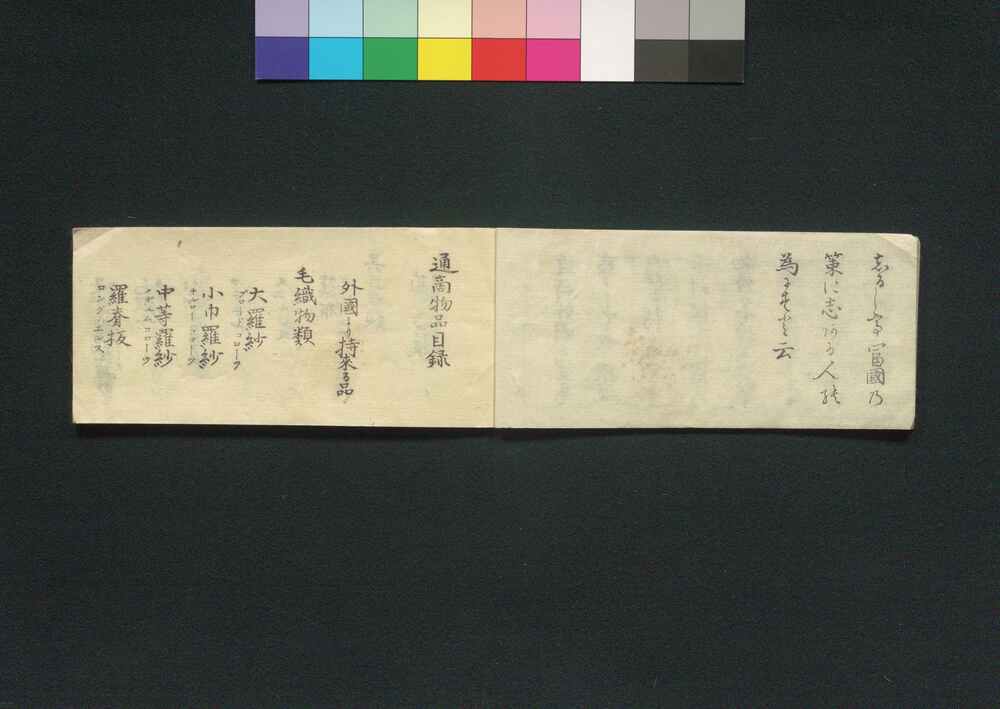 志るして富國乃
策に志ある人能
為にすと云
通商物品目録
外國より持来る品
毛織物類
大羅紗
ブロードコローフ
小巾羅紗
ナルローコローフ
中等羅紗
メヂユムコローフ
羅脊板
ロングエルス